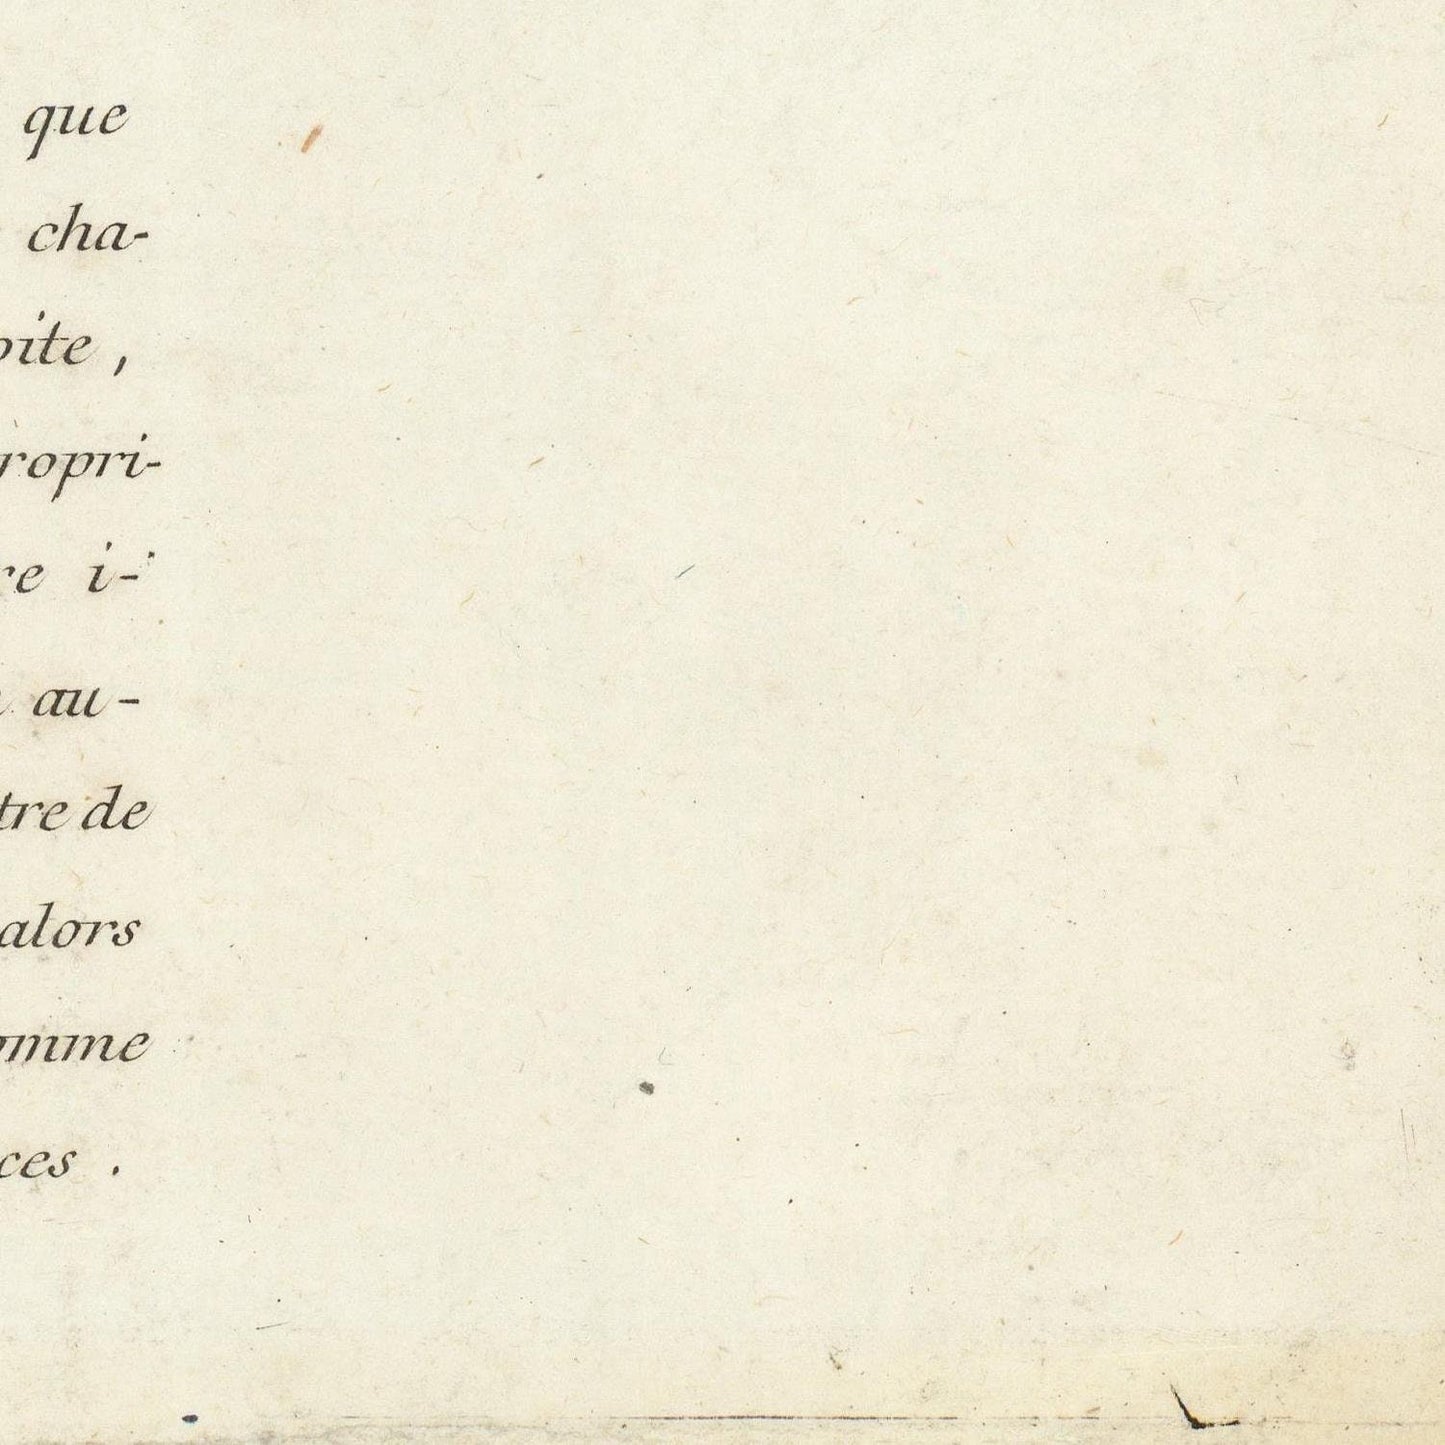 que
cha-
oite ,
ropri-
re i-
au-
tre de
alors
omme
ces .